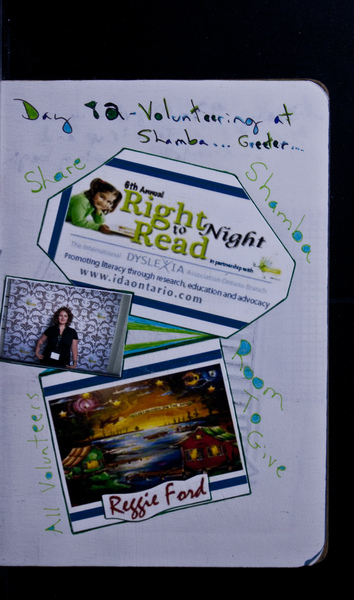 Day 92 - Volunteering at
Shamba... Greeter...
Share
Shamba
6th Annual
Right Night
to
Read
in partnership with
The International DYSLEXIA Association Ontario Branch
Promoting literacy through research, education and advocacy
www.idaontario.com
Room To Give
All Volunteers
Reggie Ford